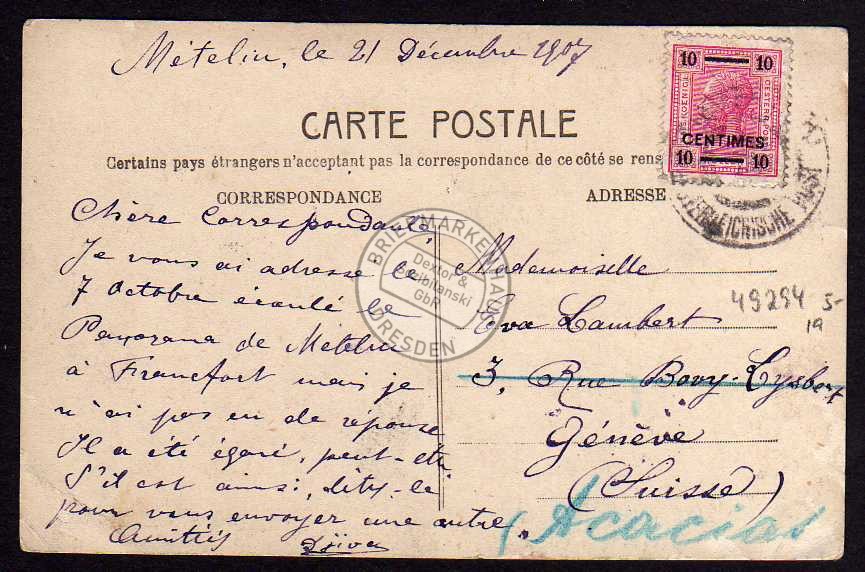 Mételin, le 21 Décembre 1907
CARTE POSTALE
Certains pays étrangers n'acceptent pas la correspondance de ce côté se rens
CORRESPONDANCE
ADRESSE
10 10
CENTIMES
10 10
OESTERREICHISCHE
Chère Correspondante
Je vous ai adressé le
7 Octobre écoulé le
Panorama de Metelin
à Francfort mais je
n'ai pas eu de réponse
Il a été égaré, peut-êt
S'il est ainsi, dites-le
pour vous envoyer une autre.
Amitiés
Mademoiselle
Eva Lambert
3, Rue Bovy-Lysberg
Génève
(Suisse)
(Acacias
49294 5-
19
BRIEFMARKENHAUS
Dextor &
Stribilanski
GbR
DRESDEN